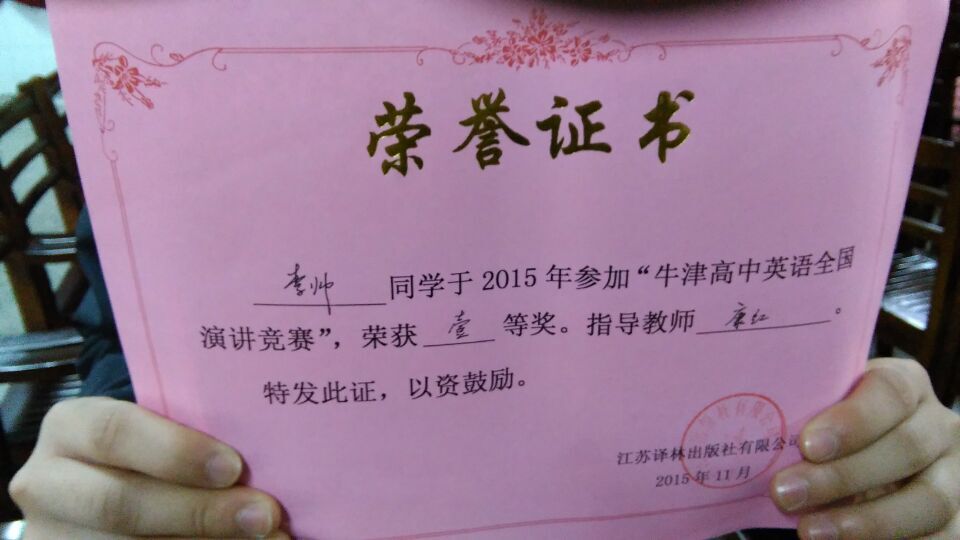 荣誉证书
李帅同学于2015年参加“牛津高中英语全国
演讲竞赛”，荣获壹等奖。指导教师康红。
特发此证，以资鼓励。
江苏译林出版社有限公司
2015年11月